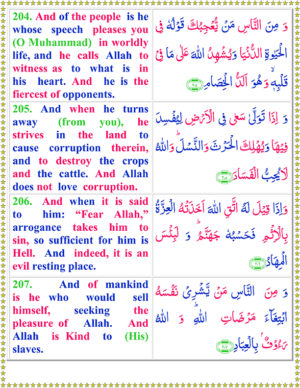 204. And of the people is he
whose speech pleases you
(O Muhammad) in worldly
life, and he calls Allah to
witness as to what is in
his heart. And he is the
fiercest of opponents.
وَ مِنَ النَّاسِ مَنْ يُّعْجِبُكَ قَوْلُهٗ فِى
الْحَيٰوةِ الدُّنْيَا وَيُشْهِدُ اللّٰهَ عَلٰى مَا فِىْ
قَلْبِهٖ ۙ وَ هُوَ اَلَدُّ الْخِصَامِ
205. And when he turns
away (from you), he
strives in the land to
cause corruption therein,
and to destroy the crops
and the cattle. And Allah
does not love corruption.
وَ اِذَا تَوَلّٰى سَعٰى فِى الْاَرْضِ لِيُفْسِدَ
فِيْهَا وَيُهْلِكَ الْحَرْثَ وَالنَّسْلَ ؕ وَاللّٰهُ
لَا يُحِبُّ الْفَسَادَ
206. And when it is said
to him: “Fear Allah,”
arrogance takes him to
sin, so sufficient for him is
Hell. And indeed, it is an
evil resting place.
وَاِذَا قِيْلَ لَهُ اتَّقِ اللّٰهَ اَخَذَتْهُ الْعِزَّةُ
بِالْاِثْمِ فَحَسْبُهٗ جَهَنَّمُ ؕ وَ لَبِئْسَ
الْمِهَادُ
207. And of mankind
is he who would sell
himself, seeking the
pleasure of Allah. And
Allah is Kind to (His)
slaves.
وَ مِنَ النَّاسِ مَنْ يَّشْرِىْ نَفْسَهُ
ابْتِغَآءَ مَرْضَاتِ اللّٰهِ ؕ وَ اللّٰهُ
رَءُوْفٌۢ بِالْعِبَادِ